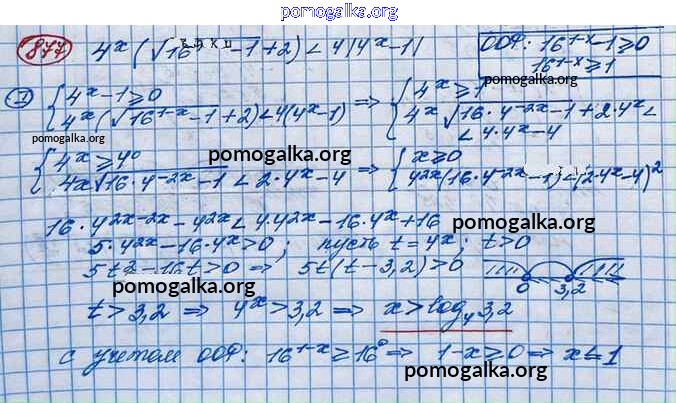 pomogalka.org
877 4^x(√16^1-x-1+2)<4|4^x-1| ООФ: 16^1-x-1≥0
16^1-x≥1
I { 4^x-1≥0 ⇒ { 4^x≥1
4^x(√16^1-x-1+2)<4(4^x-1) 4^x√16·4^-2x-1+2·4^x<
pomogalka.org <4·4^x-4
{ 4^x≥4^0 pomogalka.org ⇒ { x≥0
4x√16·4^-2x-1<2·4^x-4 4^2x(16·4^-2x-1)<(2·4^x-4)^2
16·4^2x-2x-4^2x<4·4^2x-16·4^x+16 pomogalka.org
5·4^2x-16·4^x>0; пусть t=4^x; t>0
5t^2-16t>0 ⇒ 5t(t-3,2)>0 0 3,2
pomogalka.org
t>3,2 ⇒ 4^x>3,2 ⇒ x>log_4 3,2
с учетом ООФ: 16^1-x≥16^0 ⇒ 1-x≥0 ⇒ x≤1
pomogalka.org